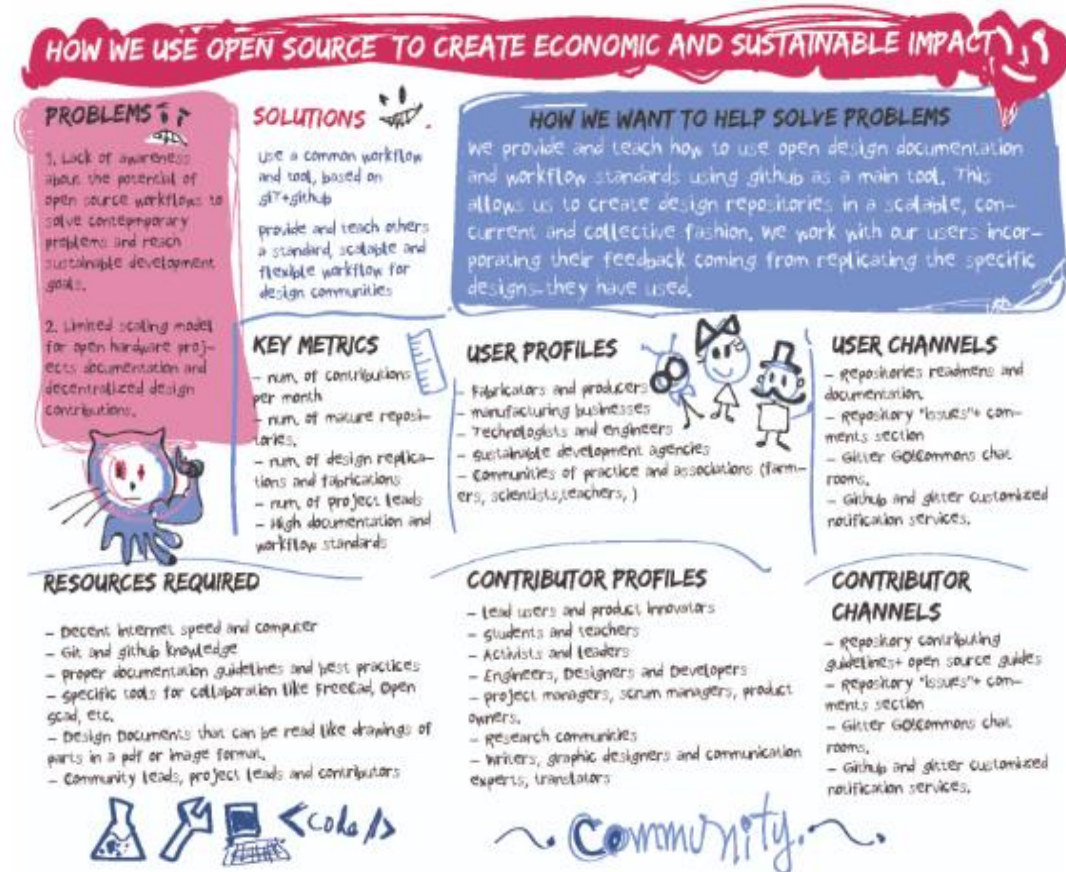 HOW WE USE OPEN SOURCE TO CREATE ECONOMIC AND SUSTAINABLE IMPACT
PROBLEMS
1. Lack of awareness
about the potential of
open source workflows to
solve contemporary
problems and reach
sustainable development
goals.
2. Limited scaling model
for open hardware proj-
ects documentation and
decentralized design
contributions.
SOLUTIONS
use a common workflow
and tool, based on
giT+github
provide and teach others
a standard, scalable and
flexible workflow for
design communities
HOW WE WANT TO HELP SOLVE PROBLEMS
We provide and teach how to use open design documentation
and workflow standards using github as a main tool. This
allows us to create design repositories in a scalable, con-
current and collective fashion. We work with our users incor-
porating their feedback coming from replicating the specific
designs they have used.
KEY METRICS
- num. of contributions
per month
- num. of mature reposi-
tories.
- num. of design replica-
tions and fabrications
- num. of project leads
- High documentation and
workflow standards
USER PROFILES
- Fabricators and producers
- manufacturing businesses
- Technologists and engineers
- Sustainable development agencies
- Communities of practice and associations (farm-
ers, scientists,teachers, )
USER CHANNELS
- Repositories readmens and
documentation.
- Repository "issues"+ com-
ments section
- Gitter GO!Commons chat
rooms.
- Github and gitter customized
notification services.
RESOURCES REQUIRED
- Decent internet speed and computer
- Git and github knowledge
- proper documentation guidelines and best practices
- Specific tools for collaboration like FreeCad, Open
scad, etc.
- Design Documents that can be read like drawings of
parts in a pdf or image format.
- Community leads, project leads and contributors
CONTRIBUTOR PROFILES
- Lead users and product innovators
- Students and teachers
- Activists and leaders
- Engineers, Designers and Developers
- project managers, scrum managers, product
owners.
- Research communities
- Writers, graphic designers and communication
experts, translators
CONTRIBUTOR
CHANNELS
- Repository contributing
guidelines+ open source guides
- Repository "issues"+ com-
ments section
- Gitter GO!Commons chat
rooms.
- Github and gitter customized
notification services.
<code/>
Community.